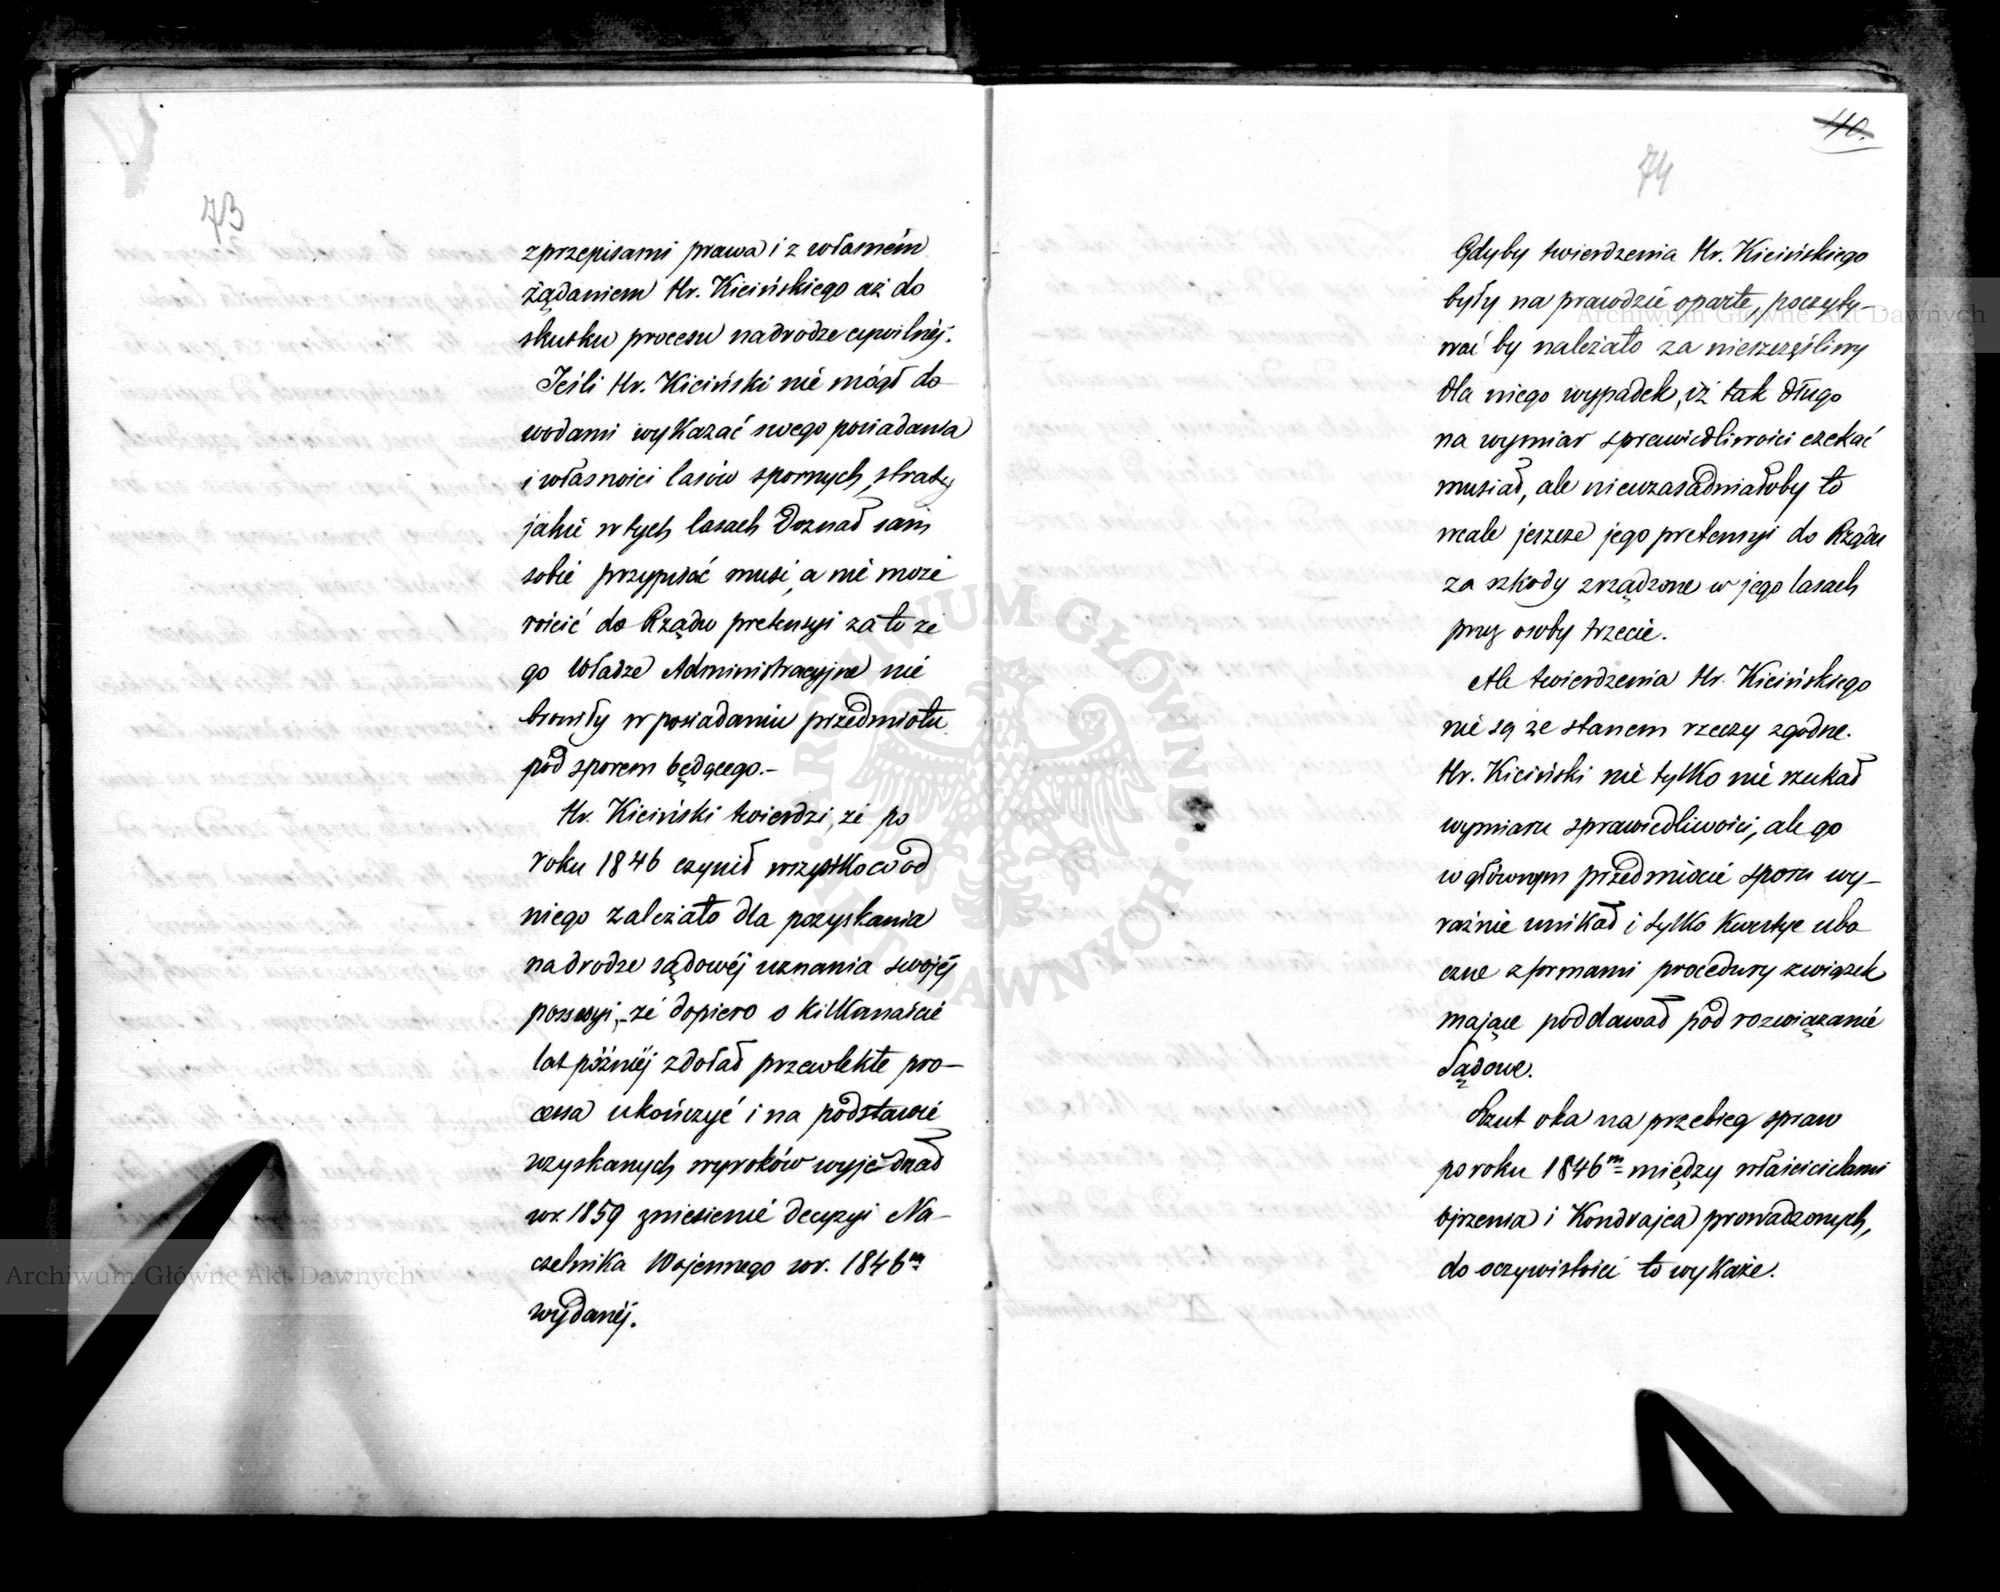 73
z przepisami prawa i z własném
żądaniem Hr. Kicińskiego aż do
skutku procesu na drodze cywilnéj.
Jeśli Hr. Kiciński nie mógł do-
wodami wykazać swego posiadania
i własności lasów spornych, straty
jakie w tych lasach doznał sam
sobie przypisać musi, a nie może
rościć do Rządu pretensyi za to że
go Władze Administracyjne nie
broniły w posiadaniu przedmiotu
pod sporem będącego.-
Hr. Kiciński twierdzi, że po
roku 1846 czynił wszystko co od
niego zależało dla pozyskania
na drodze sądowéj uznania swojéj
possesyi, - że dopiero o kilkanaście
lat później zdołał przewlekłe pro-
cessa ukończyć i na podstawie
uzyskanych wyroków wyjednał
w r. 1859 zniesienie decyzyi Na-
czelnika Wojennego w r. 1846 m
wydanéj.
40.
74
Gdyby twierdzenia Hr. Kicińskiego
były na prawdzie oparte, poczyty-
wać by należało za nieszczęśliwy
dla niego wypadek, iż tak długo
na wymiar sprawiedliwości czekać
musiał, ale nieuzasadniałoby to
wcale jeszcze jego pretensyi do Rządu
za szkody zrządzone w jego lasach
przez osoby trzecie.
Ale twierdzenia Hr. Kicińskiego
nie są ze stanem rzeczy zgodne.
Hr. Kiciński nie tylko nie szukał
wymiaru sprawiedliwości, ale go
w głównym przedmiocie sporu wy-
raźnie unikał i tylko kwestye ubo
czne z formami procedury związek
mające poddawał pod rozwiązanie
Sądowe.
Rzut oka na przebieg spraw
po roku 1846 m między właścicielami
Ojrzenia i Kondrajca prowadzonych,
do oczywistości to wykaże.
Archiwum Główne Akt Dawnych
Archiwum Główne Akt Dawnych
ARCHIWUM GŁÓWNE AKT DAWNYCH